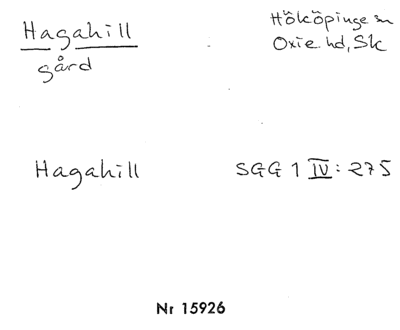 Hagahill
Hököpinge sn
gård
Oxie hd, Sk
Hagahill
SGG 1 IV: 275
Nr 15926